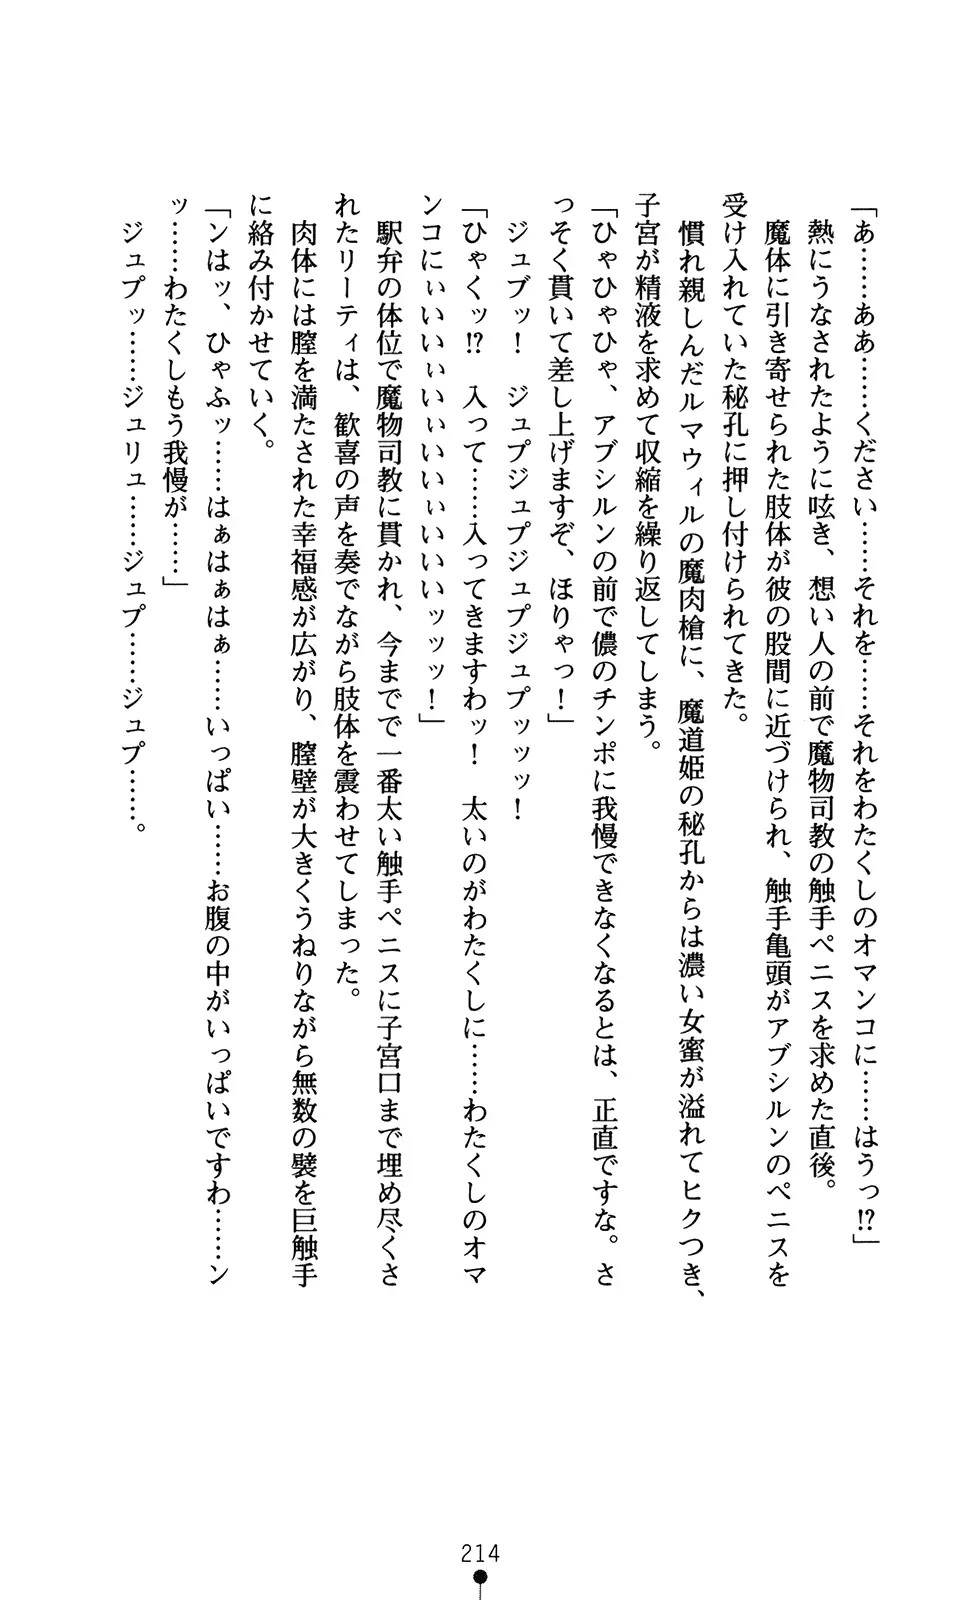 「あ……ああ……ください……それを……それをわたくしのオマンコに……はうっ!?」
熱にうなされたように呟き、想い人の前で魔物司教の触手ペニスを求めた直後。
魔体に引き寄せられた肢体が彼の股間に近づけられ、触手亀頭がアブシルンのペニスを
受け入れていた秘孔に押し付けられてきた。
慣れ親しんだルマウィルの魔肉槍に、魔道姫の秘孔からは濃い女蜜が溢れてヒクつき、
子宮が精液を求めて収縮を繰り返してしまう。
「ひゃひゃひゃ、アブシルンの前で儂のチンポに我慢できなくなるとは、正直ですな。さ
っそく貫いて差し上げますぞ、ほりゃっ！」
ジュブッ！　ジュプジュプジュプジュプッッッ！
「ひゃくッ!?　入って……入ってきますわッ！　太いのがわたくしに……わたくしのオマ
ンコにぃいいぃいぃいいぃいいいッッッ！」
駅弁の体位で魔物司教に貫かれ、今までで一番太い触手ペニスに子宮口まで埋め尽くさ
れたリーティは、歓喜の声を奏でながら肢体を震わせてしまった。
肉体には膣を満たされた幸福感が広がり、膣壁が大きくうねりながら無数の襞を巨触手
に絡み付かせていく。
「ンはッ、ひゃふッ……はぁはぁはぁ……いっぱい……お腹の中がいっぱいですわ……ン
ッ……わたくしもう我慢が……」
ジュプッ……ジュリュ……ジュプ……ジュプ……。
214